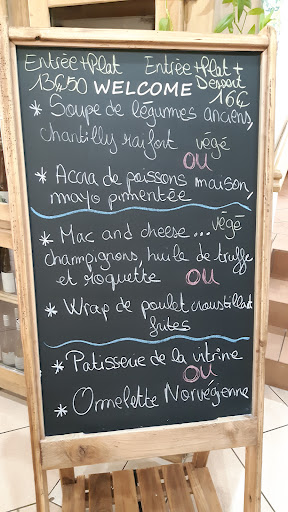 Entrée+Plat Entrée+plat+
13€50 WELCOME Dessert 16€
* Soupe de légumes anciens,
chantilly raifort végé
OU
* Accra de poissons maison,
mayo pimentée
* Mac and cheese... végé
champignons, huile de truffe
et roquette OU
* Wrap de poulet croustillant
frites
* Patisserie de la vitrine
OU
* Omelette Norvégienne